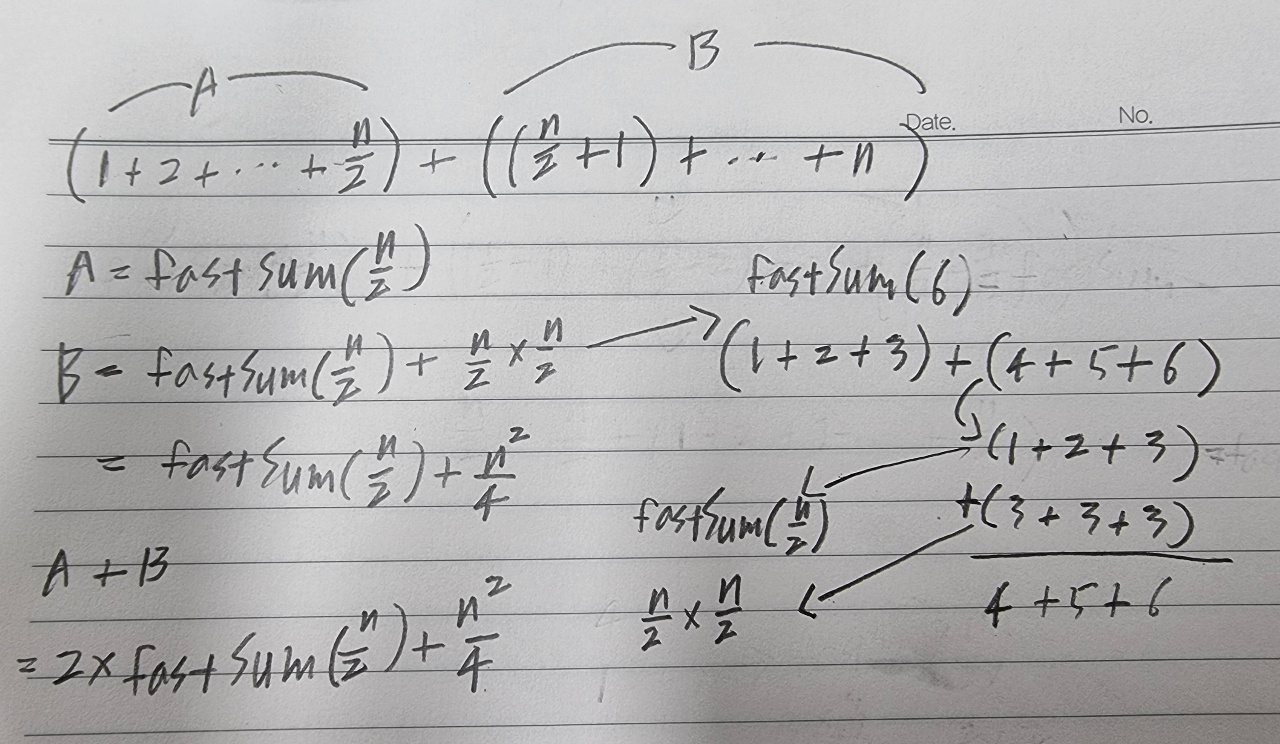 A
B
Date. No.
(1 + 2 + ... + n/2) + ((n/2 + 1) + ... + n)
A = fastSum(n/2)
B = fastSum(n/2) + n/2 × n/2
= fastSum(n/2) + n²/4
A + B
= 2 × fastSum(n/2) + n²/4
fastSum(6) =
(1 + 2 + 3) + (4 + 5 + 6)
(1 + 2 + 3)
fastSum(n/2)
+ (3 + 3 + 3)
n/2 × n/2
4 + 5 + 6